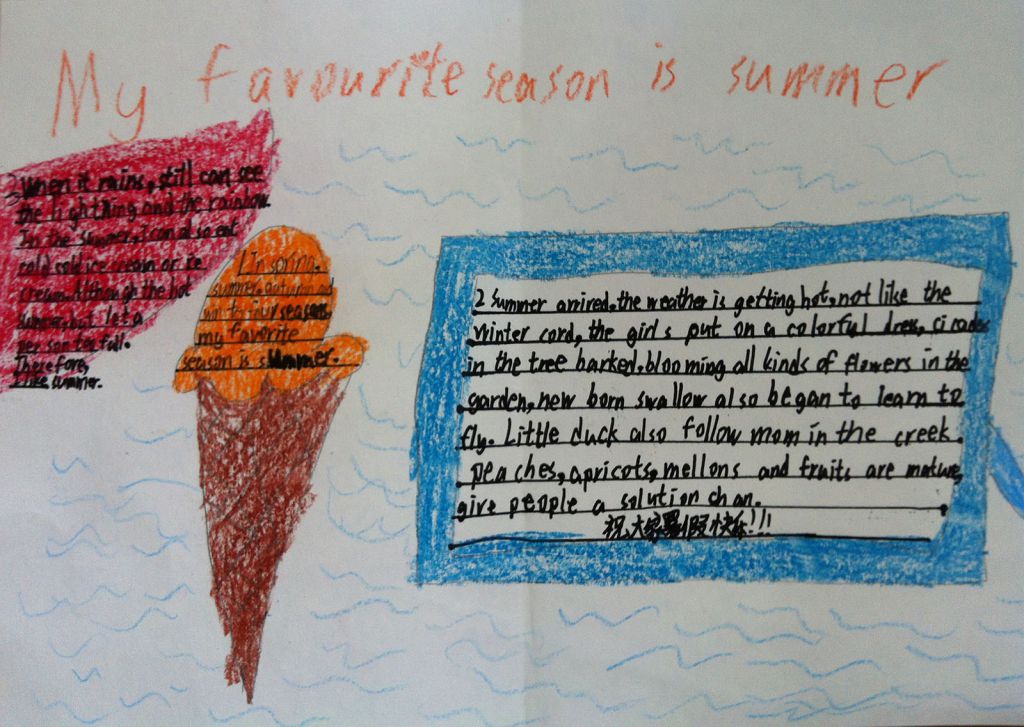 My favourite season is summer
1 In spring,
summer, autumn and
season,
my favorite
season is summer.
2 Summer arrired, the weather is getting hot, not like the
winter cord, the girls put on a colorful dress, cicadas
in the tree barked, blooming all kinds of flowers in the
garden, new born swallow also began to learn to
fly. Little duck also follow mom in the creek.
peaches, apricots, mellons and fruits are mature,
give people a solution chan.
祝大家暑假快乐!!!
3 When it rains, still can see
the lightning and the rainbow.
In the summer, I can also eat
cold cold ice cream or ice
cream. Although the hot
summer, but let a
person
Therefore,
I like summer.